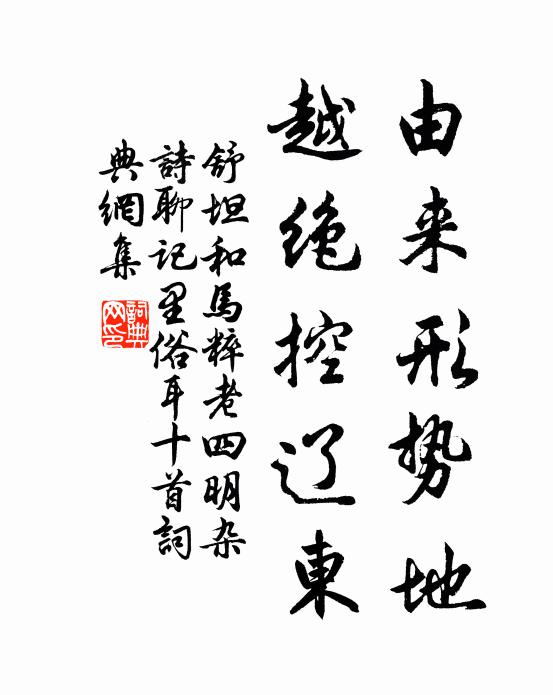 由来形势地
越绝控辽東
舒坦和馬粹老四明杂
詩聊記里俗耳十首詞
典網集
詞典网印